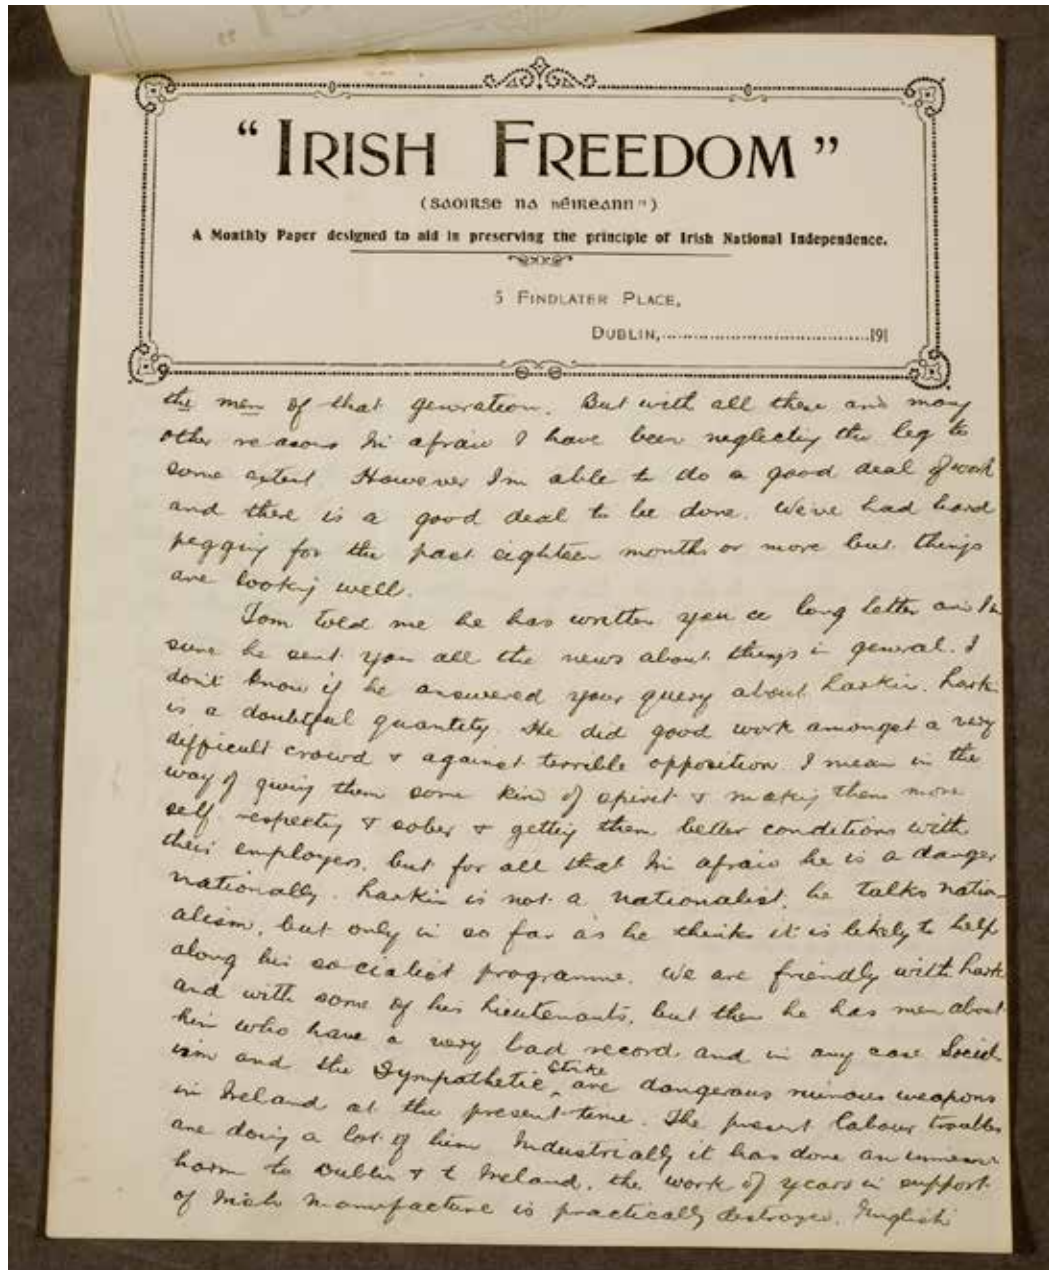 “IRISH FREEDOM”
(saoirse na hÉireann”)
A Monthly Paper designed to aid in preserving the principle of Irish National Independence.
5 FINDLATER PLACE,
DUBLIN,..............................191
the men of that generation. But with all these and many
other reasons I'm afraid I have been neglecting the leg to
some extent. However I'm able to do a good deal of work
and there is a good deal to be done. We've had hard
pegging for the past eighteen months or more but things
are looking well.
Tom told me he has written you a long letter and I'm
sure he sent you all the news about things in general. I
don't know if he answered your query about Larkin. Larkin
is a doubtful quantity. He did good work amongst a very
difficult crowd & against terrible opposition I mean in the
way of giving them some kind of spirit & making them more
self respecting & sober & getting them better conditions with
their employers, but for all that I'm afraid he is a danger
nationally. Larkin is not a nationalist, he talks nation-
alism, but only in so far as he thinks it is likely to help
along his socialist programme. We are friendly with Lark
and with some of his lieutenants, but then he has men about
him who have a very bad record and in any case Social
ism and the Sympathetic strike are dangerous ruinous weapons
in Ireland at the present time. The present labour troubles
are doing a lot of Industrially it has done an immense
harm to Dublin & to Ireland, the work of years in support
of Irish manufacture is practically destroyed. English